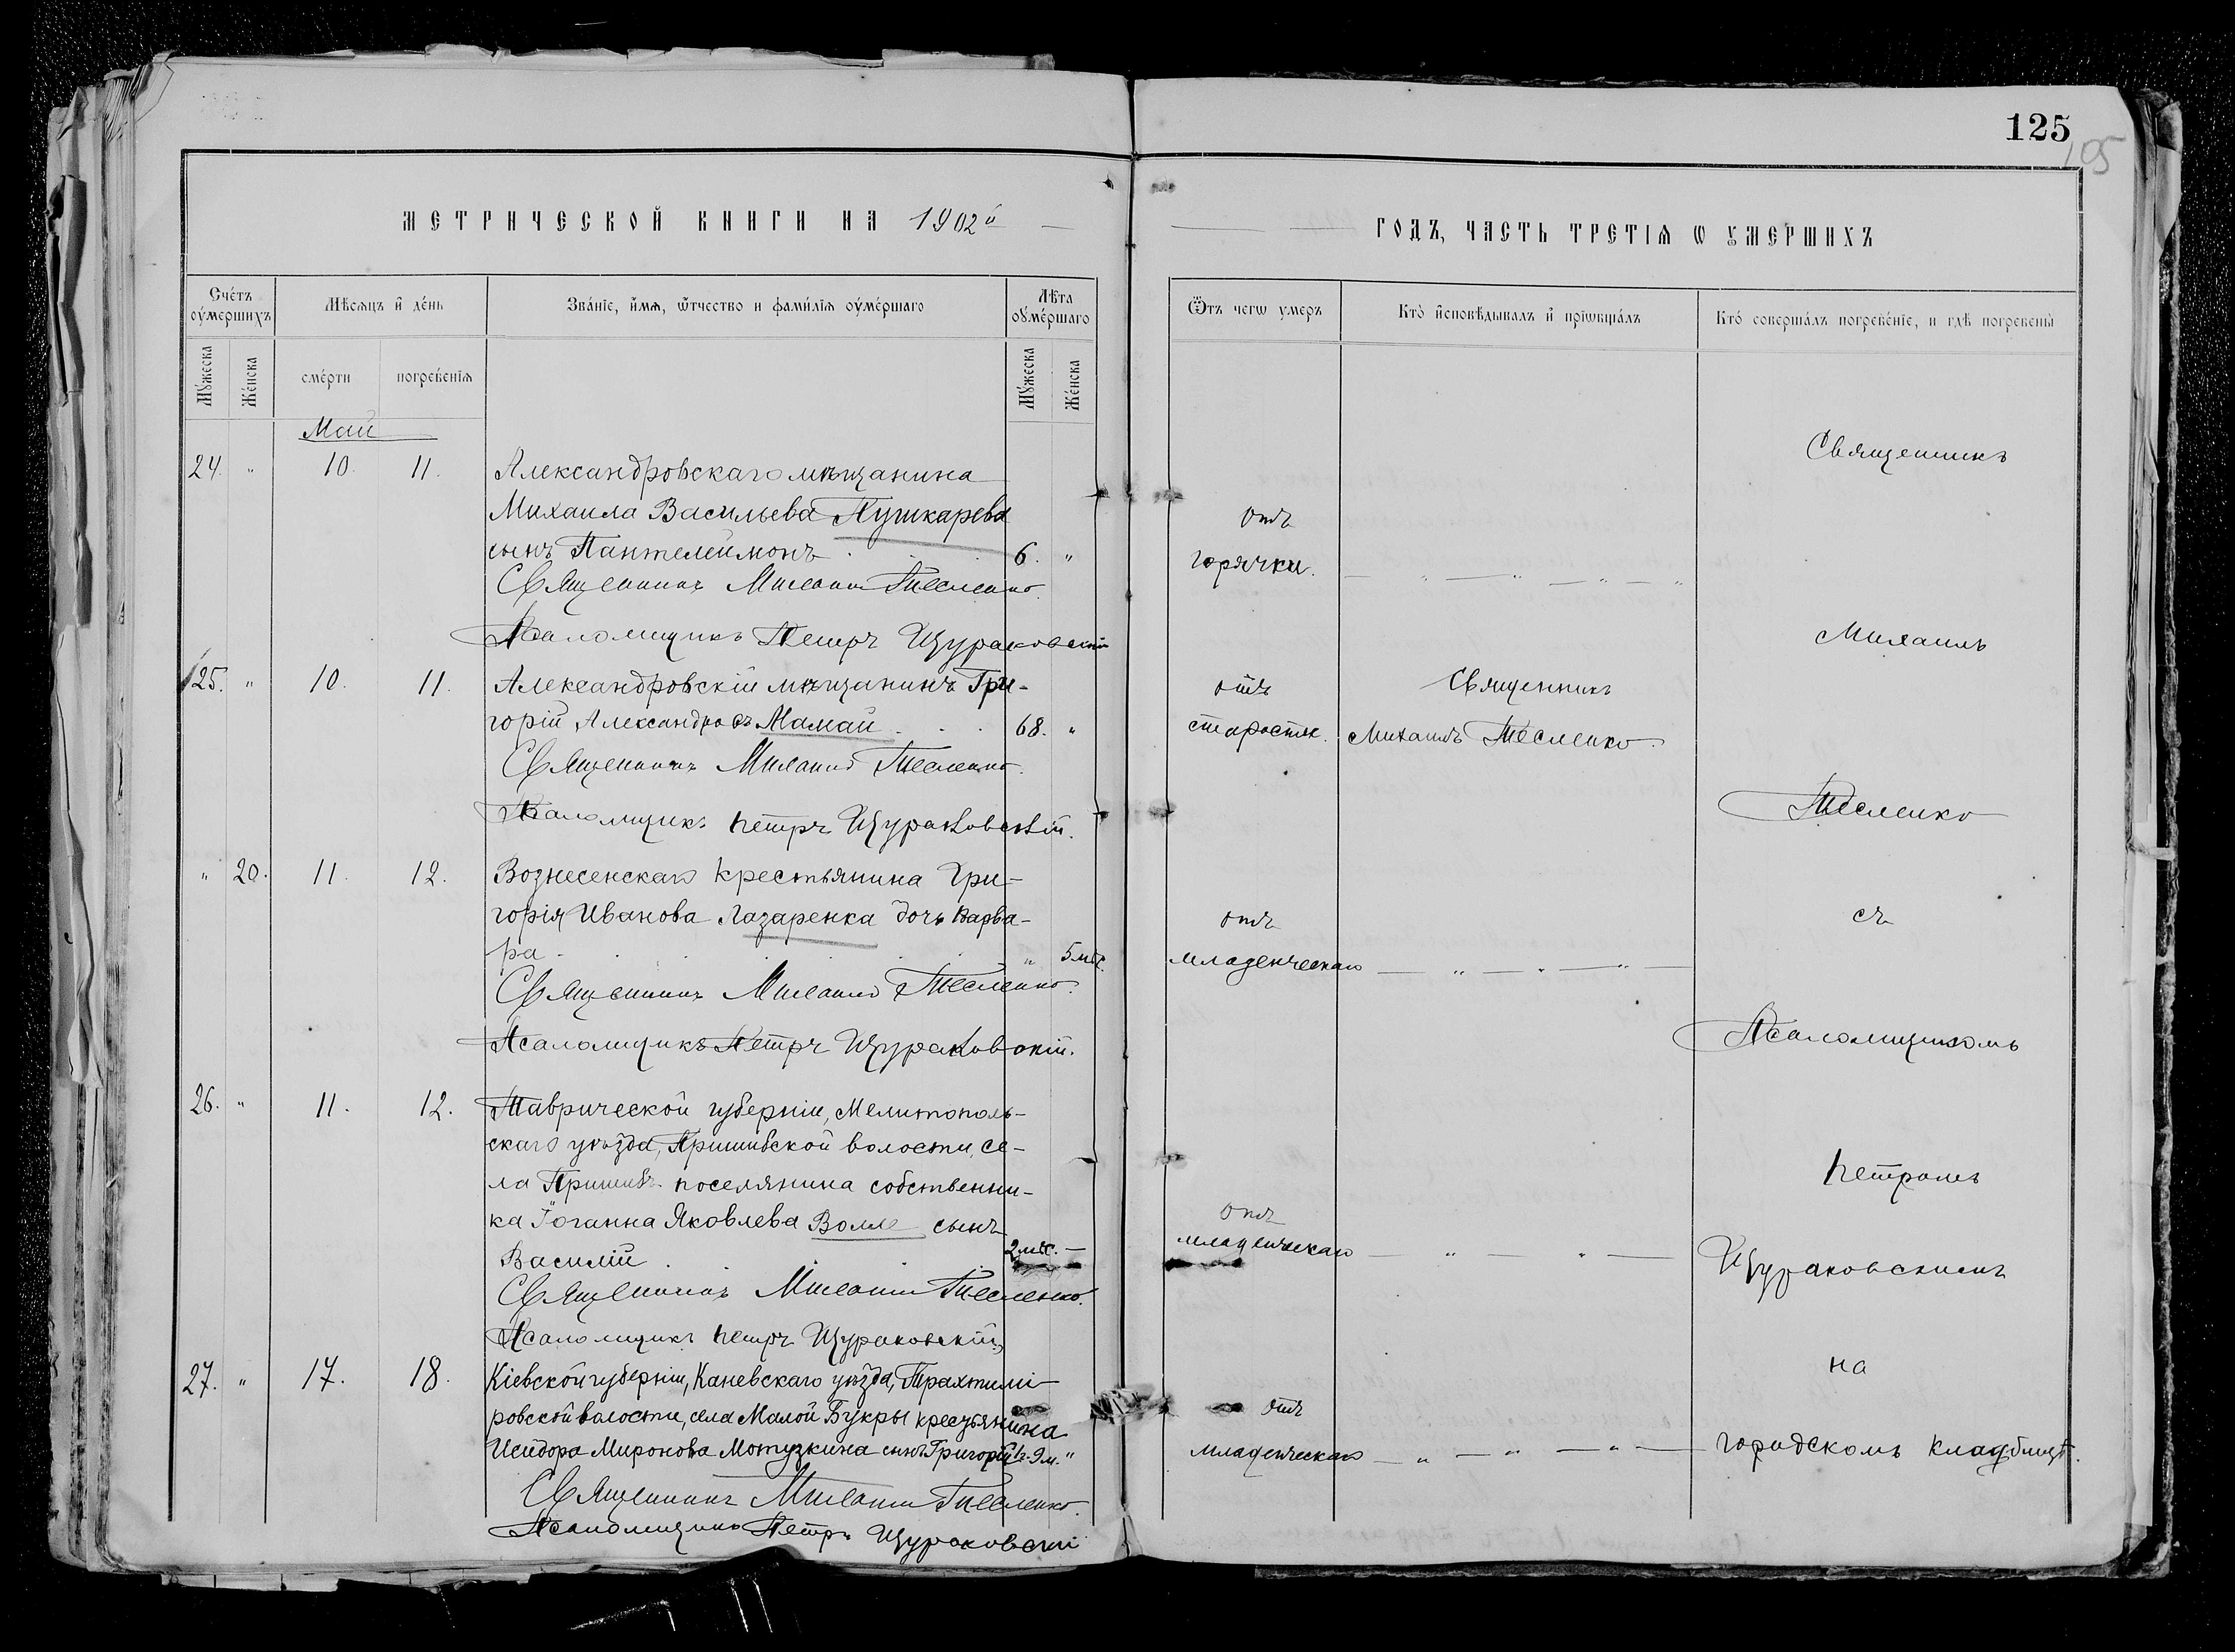 125
105
МЕТРИЧЕСКОЙ КНИГИ НА 1902й
ГОДЪ, ЧАСТЬ ТРЕТІѦ Ѡ УМЕРШИХЪ
Счётъ оумершихъ
Мѣсяцъ и день
Званіе, имѧ, ѿчество и фамиліѧ оумершаго
Лѣта оумершаго
Мужеска
Женска
смерти
погребеніѧ
Мужеска
Женска
Ѿтъ чегѡ умеръ
Кто исповѣдывалъ и прїѡбщалъ
Кто совершалъ погребеніе, и гдѣ погребены
Май
24. " 10. 11.
Александровскаго мѣщанина
Михаила Васильева Пушкарева
сынъ Пантелеймонъ . . . 6. "
Священникъ Михаилъ Тесленко.
Псаломщикъ Петръ Щураковскій
отъ
горячки.
25. " 10. 11.
Александровскій мѣщанинъ Гри-
горій Александровъ Мамай . . . 68. "
Священникъ Михаилъ Тесленко.
Псаломщикъ Петръ Щураковскій.
отъ
старости.
Священникъ
Михаилъ Тесленко.
" 20. 11. 12.
Вознесенскаго крестьянина Гри-
горія Иванова Лазаренка дочь Варва-
ра . . . . . " 5 мѣс.
Священникъ Михаилъ Тесленко.
Псаломщикъ Петръ Щураковскій.
отъ
младенческаго
26. " 11. 12.
Таврической губерніи, Мелитополь-
скаго уѣзда, Пришибской волости, се-
ла Пришибъ поселянина собственни-
ка Іоганна Яковлева Волле сынъ
Василій . . . 2 мѣс. —
Священникъ Михаилъ Тесленко.
Псаломщикъ Петръ Щураковскій.
отъ
младенческаго
27. " 17. 18.
Кіевской губерніи, Каневскаго уѣзда, Трахтими-
ровской волости, села Малой Букры крестьянина
Исидора Миронова Мотузкина сынъ Григорій 9 м. "
Священникъ Михаилъ Тесленко.
Псаломщикъ Петръ Щураковскій
отъ
младенческаго
Священникъ
Михаилъ
Тесленко
съ
Псаломщикомъ
Петромъ
Щураковскимъ
на
городскомъ кладбищѣ.